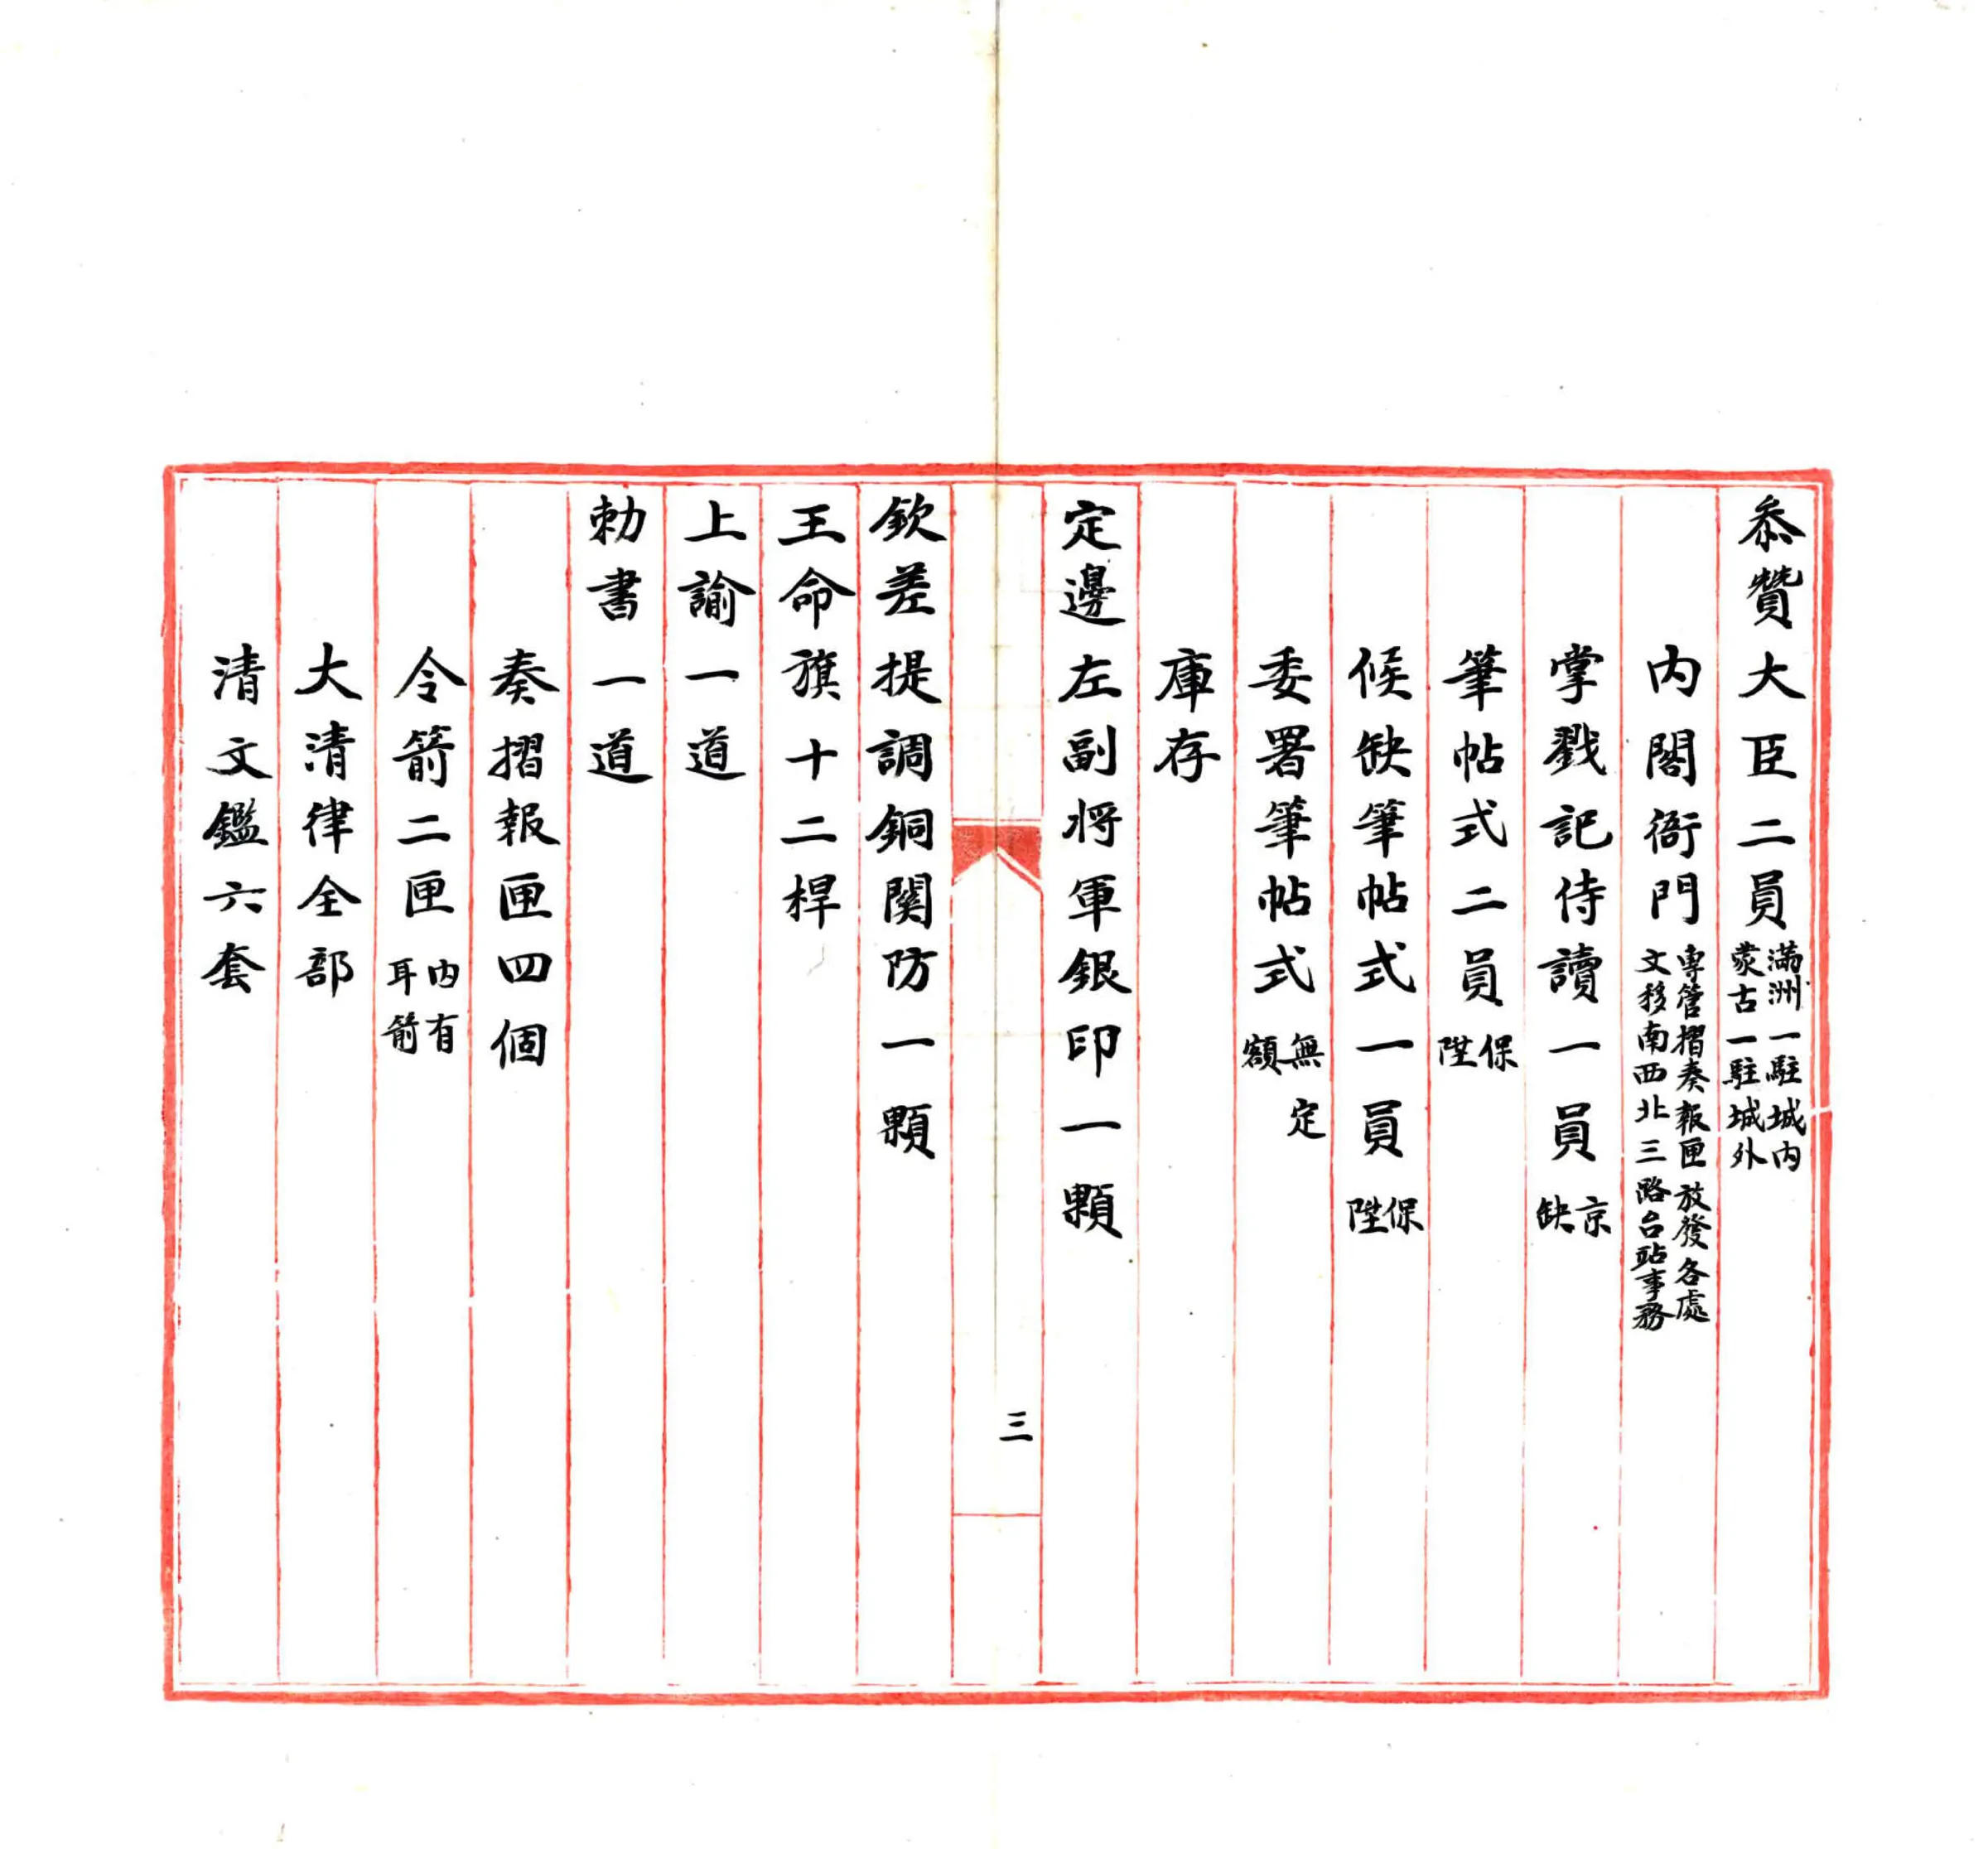 叅贊大臣二員滿洲一駐城內蒙古一駐城外
內閣衙門專管摺奏報匣放發各處文移南西北三路台站事務
掌戳記侍讀一員京缺
筆帖式二員保陞
候缺筆帖式一員保陞
委署筆帖式無定額
庫存
定邊左副將軍銀印一顆
三
欽差提調銅関防一顆
王命旗十二桿
上諭一道
勅書一道
奏摺報匣四個
令箭二匣內有耳箭
大清律全部
清文鑑六套